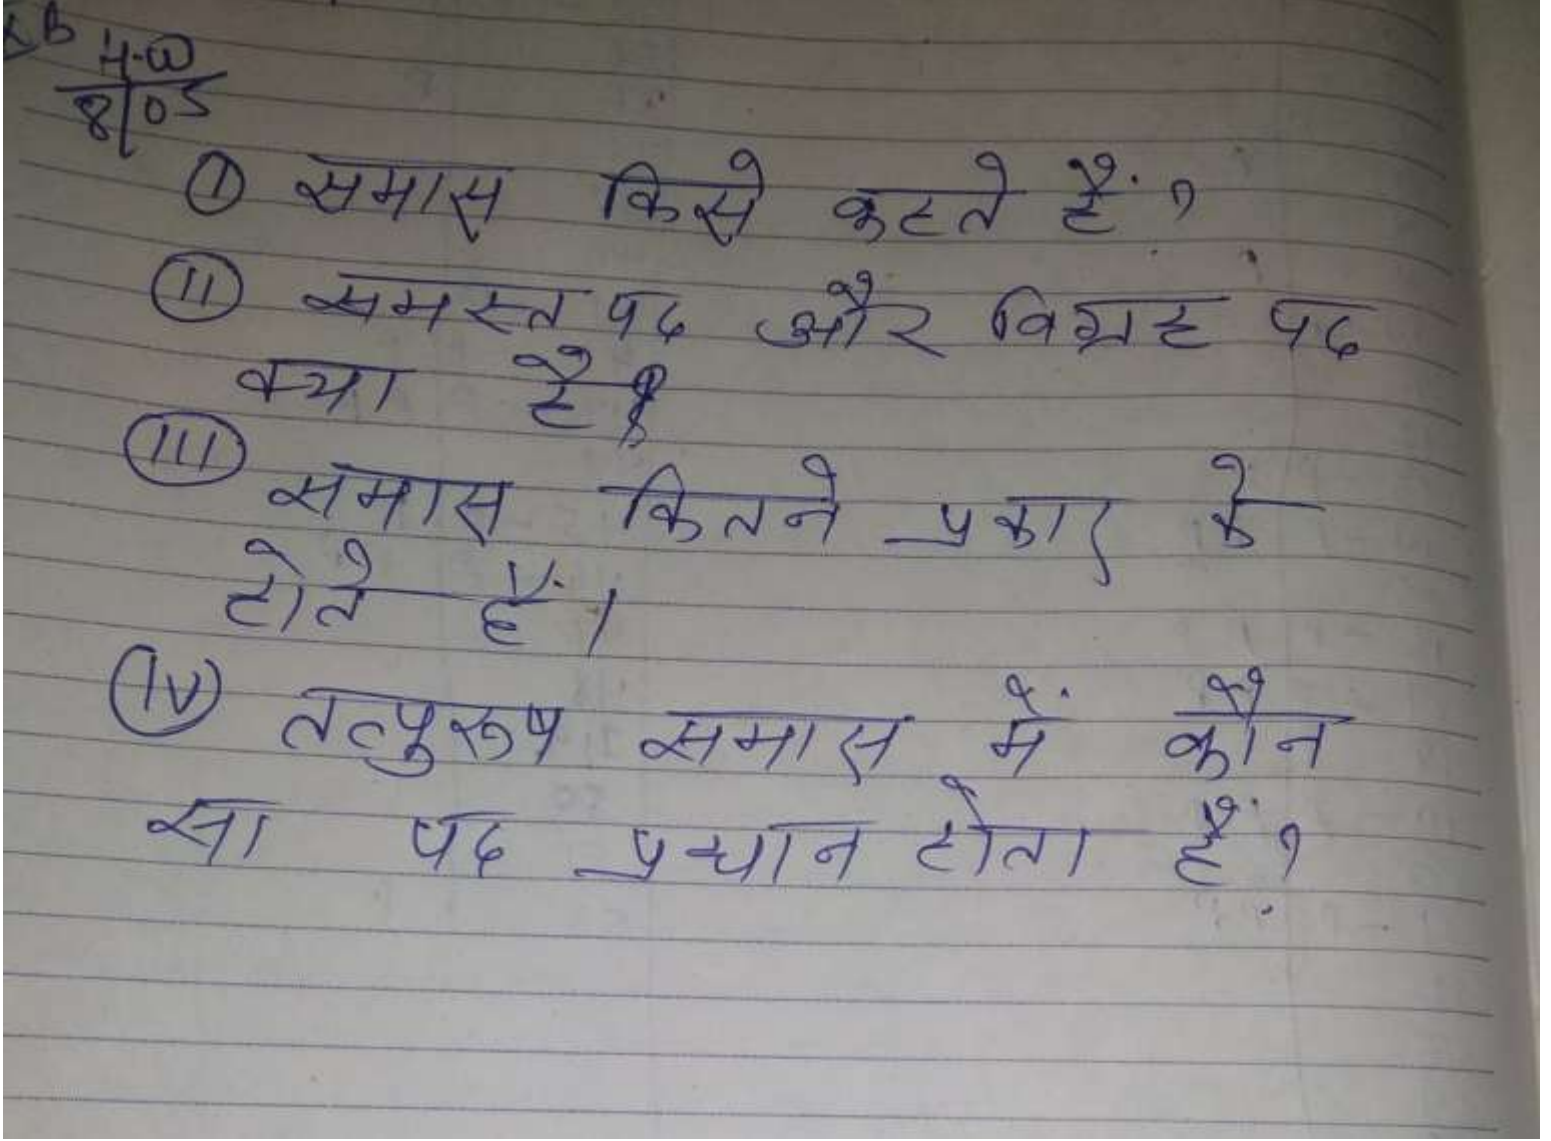 H.W
8/05
(I) समास किसे कहते हैं?
(II) समस्त पद और विग्रह पद
क्या है?
(III) समास कितने प्रकार के
होते हैं।
(IV) तत्पुरूष समास में कौन
सा पद प्रधान होता है?